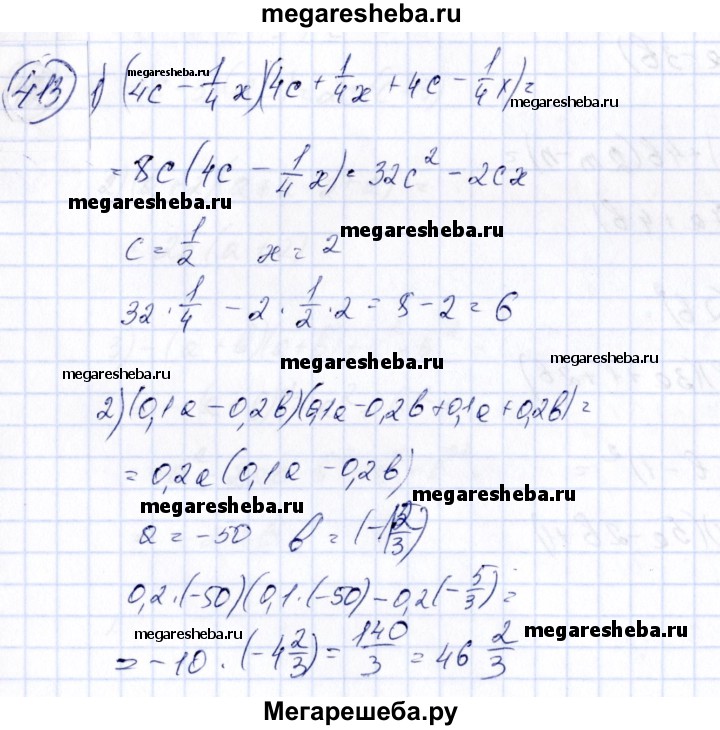 megaresheba.ru
413 1) (4c - 1/4 x)(4c + 1/4 x + 4c - 1/4 x) =
megaresheba.ru megaresheba.ru
= 8c (4c - 1/4 x) = 32c² - 2cx
megaresheba.ru
c = 1/2 x = 2 megaresheba.ru
32 · 1/4 - 2 · 1/2 · 2 = 8 - 2 = 6
megaresheba.ru megaresheba.ru megaresheba.ru
2) (0,1a - 0,2b)(0,1a - 0,2b + 0,1a + 0,2b) =
= 0,2a (0,1a - 0,2b)
megaresheba.ru megaresheba.ru
a = -50 b = (-1 2/3)
0,2 · (-50)(0,1 · (-50) - 0,2(-5/3) =
megaresheba.ru megaresheba.ru
= -10 · (-4 2/3) = 140/3 = 46 2/3
Мегарешеба.ру